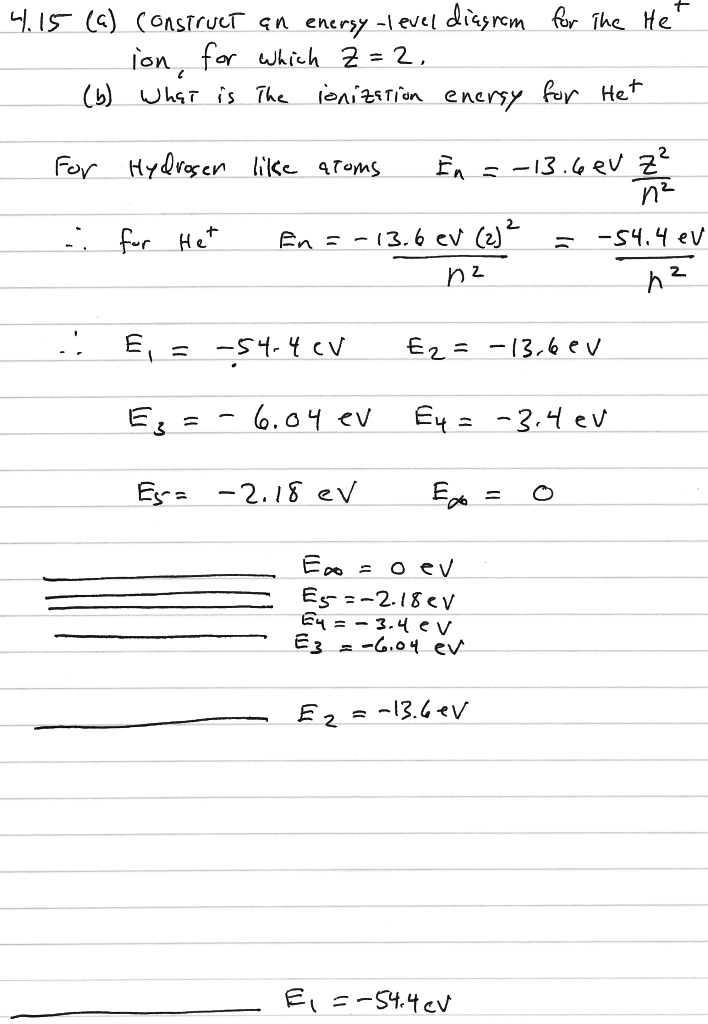 4.15 (a) Construct an energy-level diagram for the He⁺
ion, for which Z = 2.
(b) What is the ionization energy for He⁺
For Hydrogen like atoms En = -13.6 eV Z²/n²
∴ for He⁺ En = -13.6 eV (2)²/n² = -54.4 eV/n²
∴ E₁ = -54.4 eV E₂ = -13.6 eV
E₃ = - 6.04 eV E₄ = -3.4 eV
E₅ = -2.18 eV E∞ = 0
E∞ = 0 eV
E₅ = -2.18 eV
E₄ = -3.4 eV
E₃ = -6.04 eV
E₂ = -13.6 eV
E₁ = -54.4 eV